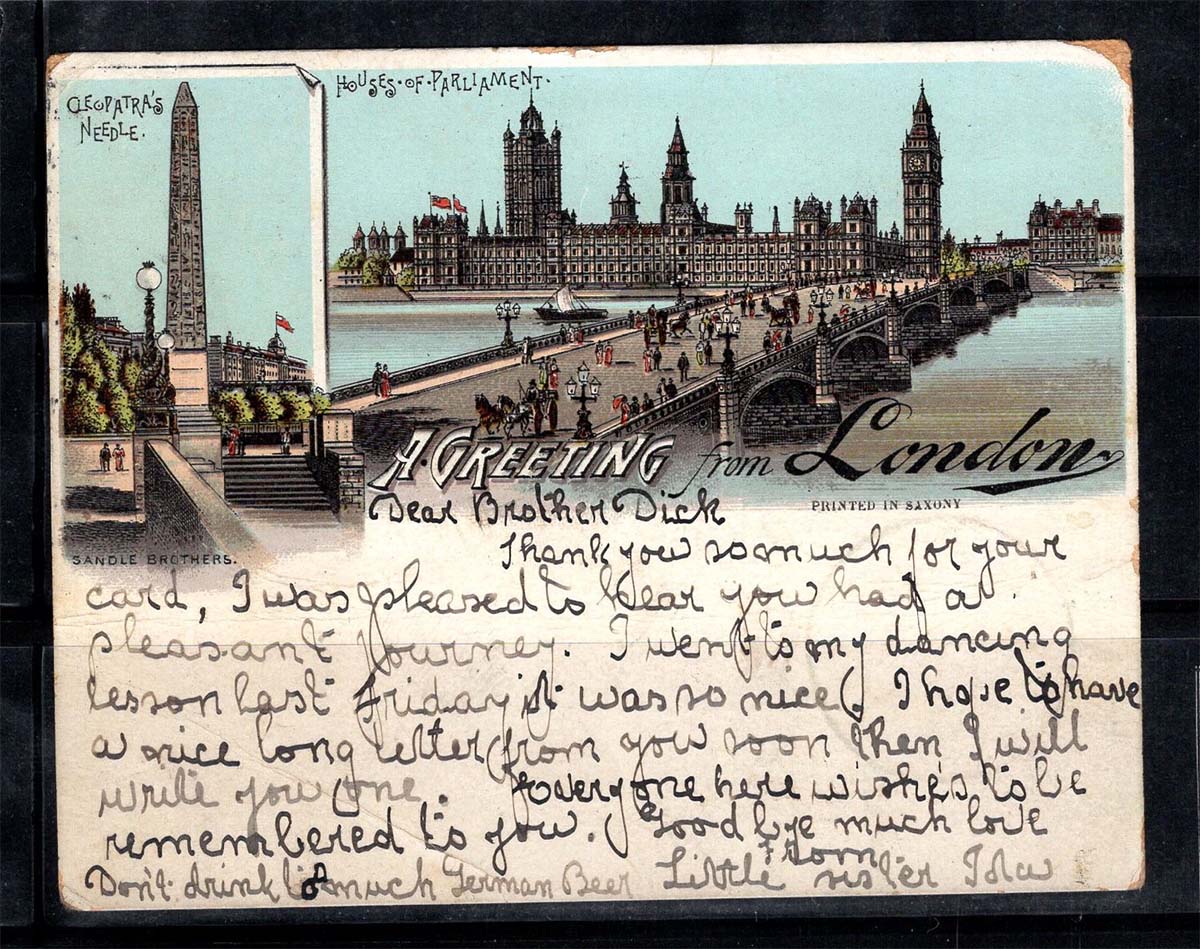 CLEOPATRA'S
NEEDLE.
HOUSES·OF·PARLIAMENT·
A·GREETING from London
PRINTED IN SAXONY
SANDLE BROTHERS.
Dear Brother Dick
Thank you so much for your
card, I was pleased to hear you had a
pleasant journey. I went to my dancing
lesson last Friday it was so nice. I hope to have
a nice long letter from you soon then I will
write you one. Everyone here wishes to be
remembered to you. Good bye much love
from
Don't drink to much German Beer Little sister Ida